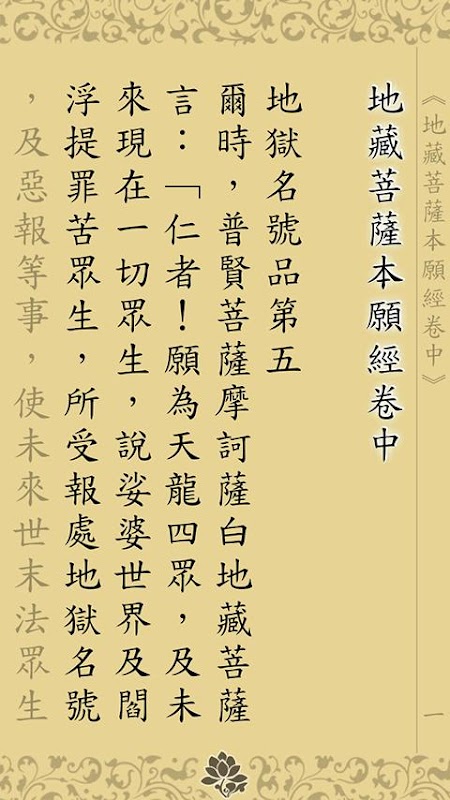 《地藏菩薩本願經卷中》
一
地藏菩薩本願經卷中
地獄名號品第五
爾時，普賢菩薩摩訶薩白地藏菩薩
言：「仁者！願為天龍四眾，及未
來現在一切眾生，說娑婆世界及閻
浮提罪苦眾生，所受報處地獄名號
，及惡報等事，使未來世末法眾生